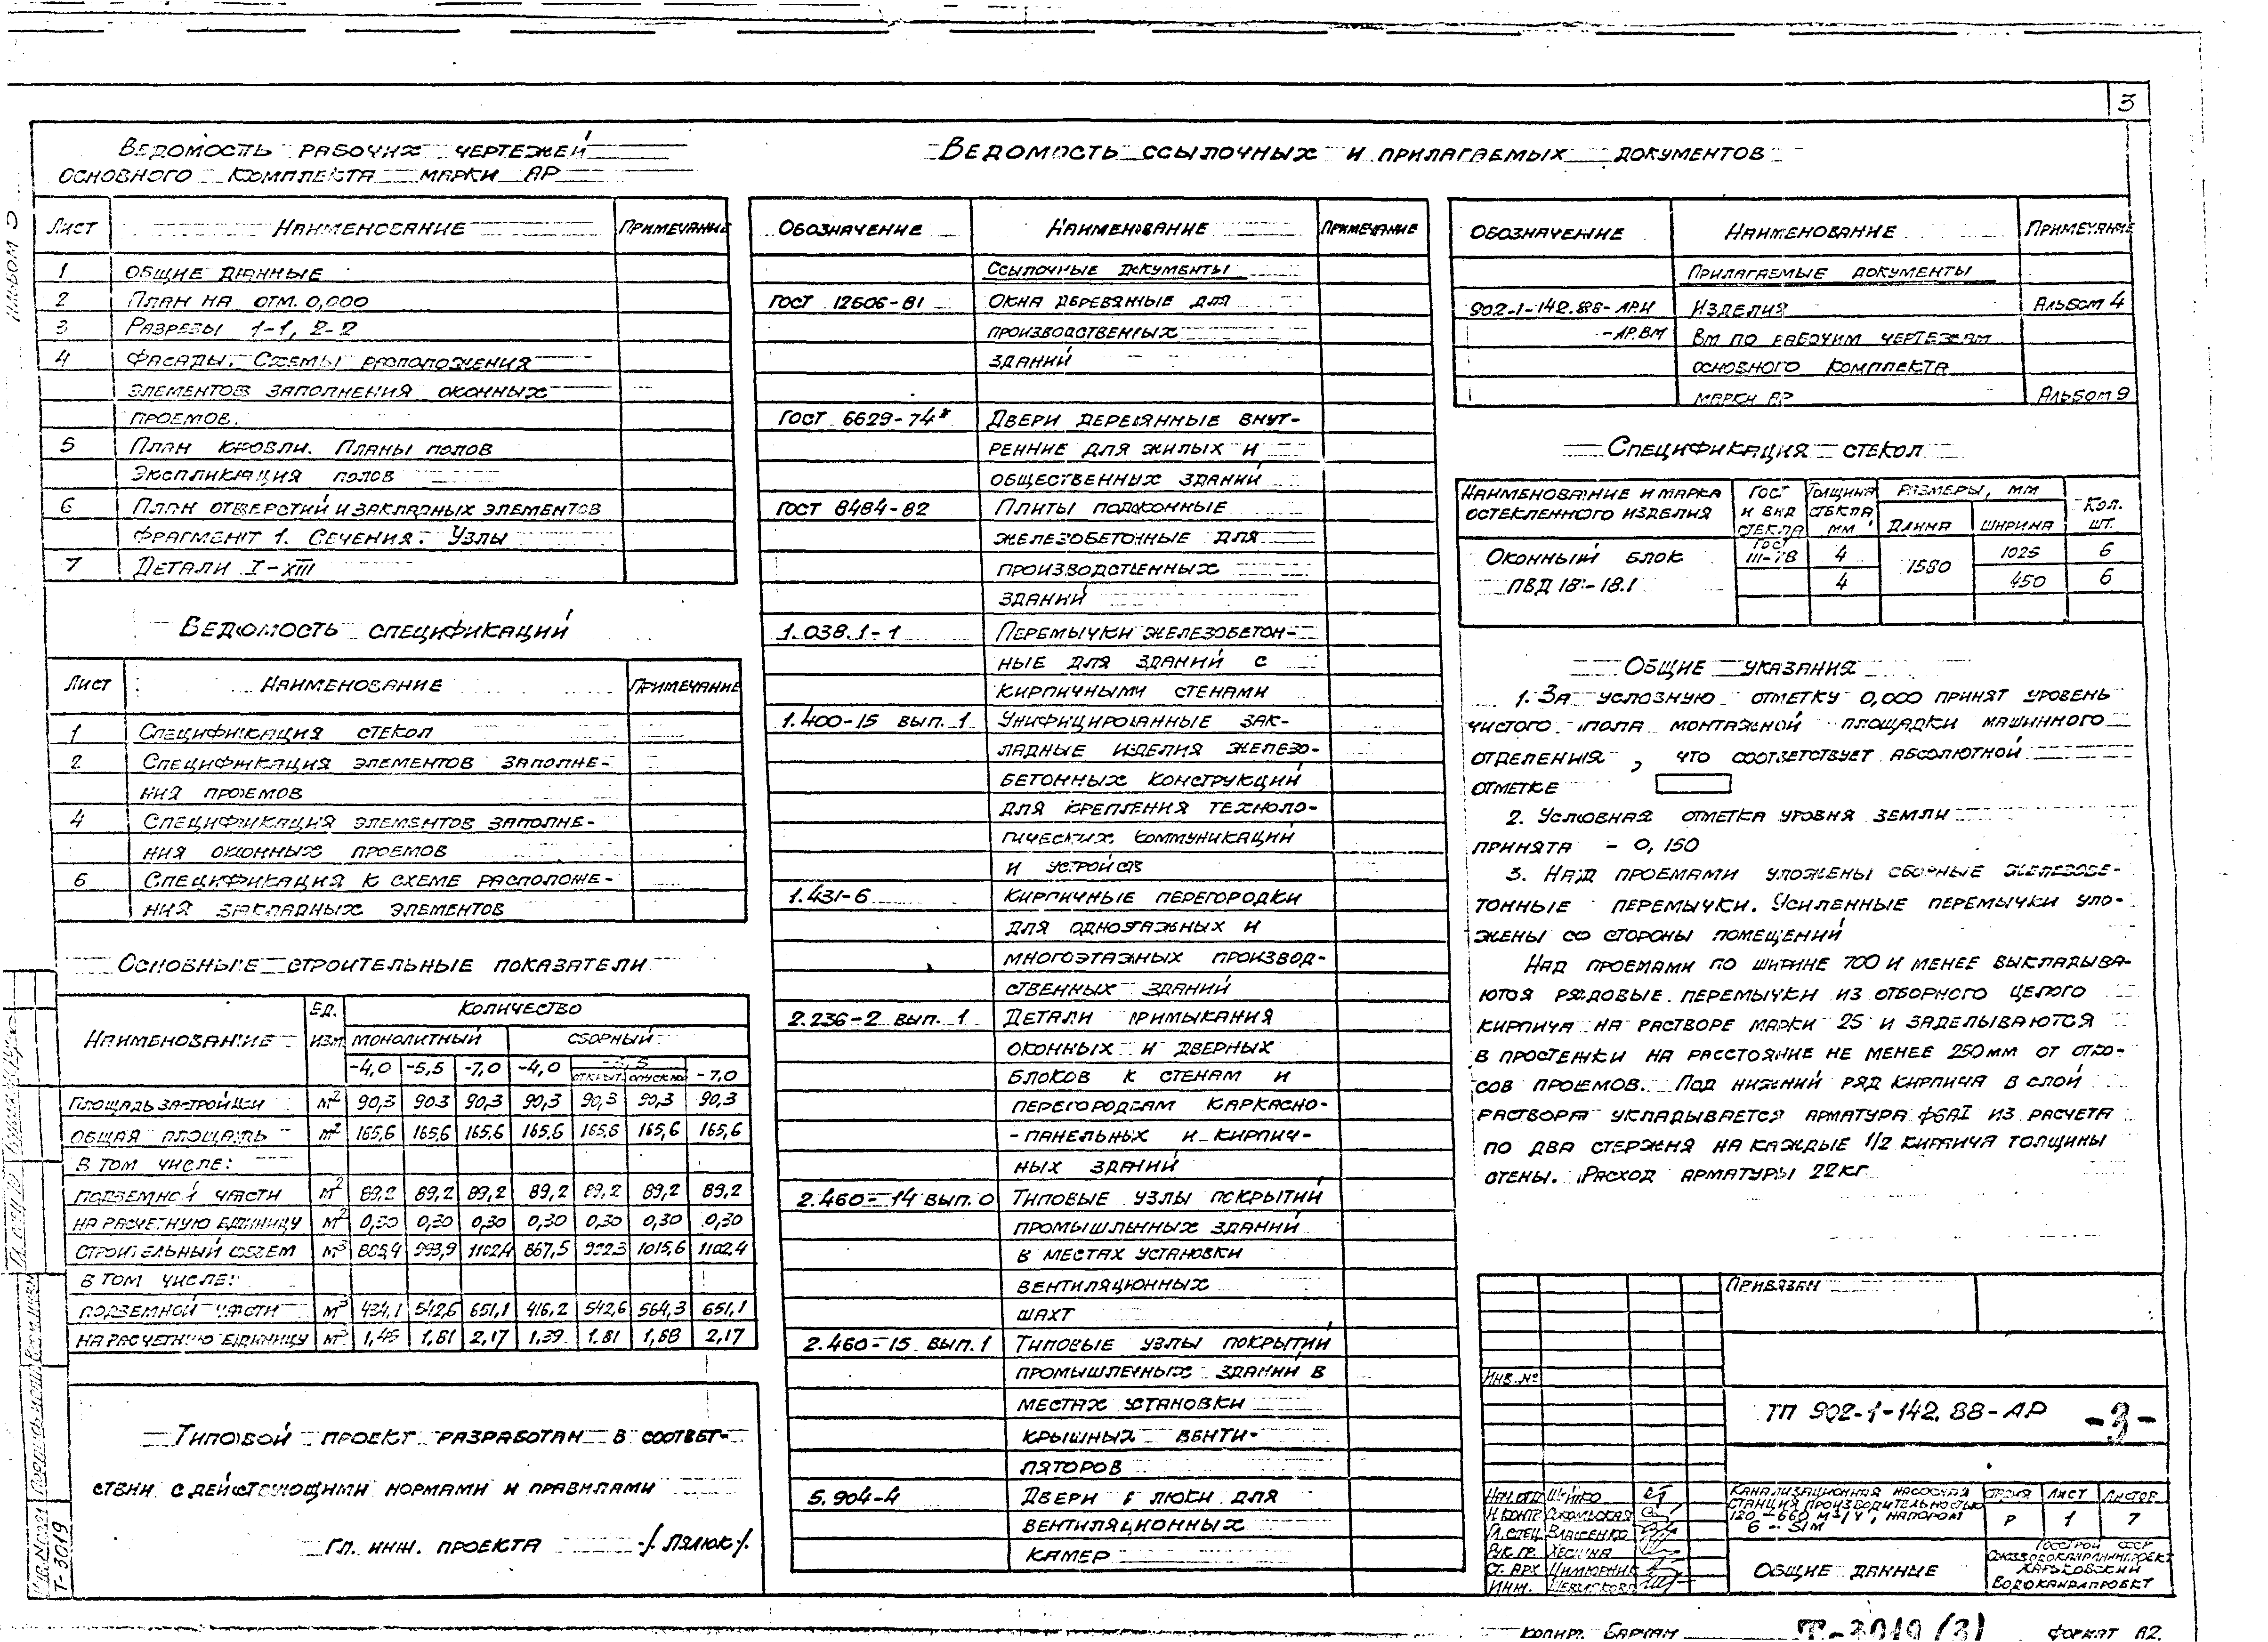 3
Ведомость рабочих чертежей
основного комплекта марки АР
Лист Наименование Примечание
1 Общие данные
2 План на отм. 0,000
3 Разрезы 1-1, 2-2
4 Фасады. Схемы расположения
элементов заполнения оконных
проемов.
5 План кровли. Планы полов
Экспликация полов
6 План отверстий и закладных элементов
Фрагмент 1. Сечения. Узлы
7 Детали I-XIII
Ведомость спецификаций
Лист Наименование Примечание
1 Спецификация стекол
2 Спецификация элементов заполне-
ния проемов
4 Спецификация элементов заполне-
ния оконных проемов
6 Спецификация к схеме расположе-
ния закладных элементов
Основные строительные показатели
Наименование Ед. изм. Количество
монолитный сборный
-4,0 -5,5 -7,0 -4,0 -5,5 -7,0
открыт. опускн.
Площадь застройки м2 90,3 90,3 90,3 90,3 90,3 90,3 90,3
Общая площадь м2 165,6 165,6 165,6 165,6 165,6 165,6 165,6
в том числе:
подземной части м2 89,2 89,2 89,2 89,2 89,2 89,2 89,2
на расчетную единицу м2 0,30 0,30 0,30 0,30 0,30 0,30 0,30
Строительный объем м3 993,9 1102,4 867,5 1015,6 1102,4
в том числе:
подземной части м3 434,1 542,6 651,1 416,2 542,6 564,3 651,1
на расчетную единицу м3 1,45 1.81 2,17 1,39 1.81 1,88 2,17
Типовой проект разработан в соответ-
ствии с действующими нормами и правилами
Гл. инж. проекта /Пялюк/
Ведомость ссылочных и прилагаемых документов
Обозначение Наименование Примечание
Ссылочные документы
ГОСТ 12506-81 Окна деревянные для
производственных
зданий
ГОСТ 6629-74* Двери деревянные внут-
ренние для жилых и
общественных зданий
ГОСТ 8484-82 Плиты подоконные
железобетонные для
производственных
зданий
1.038.1-1 Перемычки железобетон-
ные для зданий с
кирпичными стенами
1.400-15 вып. 1 Унифицированные зак-
ладные изделия железо-
бетонных конструкций
для крепления техноло-
гических коммуникаций
и устройств
1.431-6 Кирпичные перегородки
для одноэтажных и
многоэтажных производ-
ственных зданий
2.236-2 вып. 1 Детали примыкания
оконных и дверных
блоков к стенам и
перегородкам каркасно-
-панельных и кирпич-
ных зданий
2.460-14 вып. 0 Типовые узлы покрытий
промышленных зданий
в местах установки
вентиляционных
шахт
2.460-15 вып. 1 Типовые узлы покрытий
промышленных зданий в
местах установки
крышных венти-
ляторов
5.904-4 Двери и люки для
вентиляционных
камер
Обозначение Наименование Примечание
Прилагаемые документы
902-1-142.88-АР.И Изделия Альбом 4
-АР.ВМ ВМ по рабочим чертежам
основного комплекта
марки АР Альбом 9
Спецификация стекол
Наименование и марка остекленного изделия ГОСТ и вид стекла Толщина стекла мм Размеры, мм Кол. шт.
длина ширина
Оконный блок ГОСТ 111-78 4 1580 1025 6
ПВД 18-18.1 4 450 6
Общие указания
1. За условную отметку 0,000 принят уровень
чистого пола монтажной площадки машинного
отделения, что соответствует абсолютной
отметке
2. Условная отметка уровня земли
принята - 0,150
3. Над проемами уложены сборные железобе-
тонные перемычки. Усиленные перемычки уло-
жены со стороны помещений
Над проемами по ширине 700 и менее выкладыва-
ются рядовые перемычки из отборного целого
кирпича на растворе марки 25 и заделываются
в простенки на расстояние не менее 250мм от отко-
сов проемов. Под нижний ряд кирпича в слой
раствора укладывается арматура ф6АI из расчета
по два стержня на каждые 1/2 кирпича толщины
стены. Расход арматуры 22кг
Привязан
Инв. №
ТП 902-1-142.88-АР -3-
Нач. отд. Шейко
Н. контр. Сокольская
Гл. спец. Власенко
Рук. гр.
Ст. арх.
Инж.
Канализационная насосная
станция производительностью
120-660 м3/ч, напором
6-51м
Стадия Лист Листов
Р 1 7
Общие данные
Госстрой СССР
Союзводоканалниипроект
Харьковский
Водоканалпроект
Копир. Барган Т-3019 (3) Формат А2.
Т-3019
Альбом 3